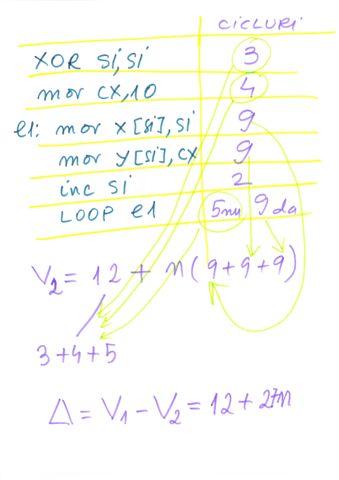 CICLURI
XOR si,si 3
mov CX,10 4
e1: mov x[si],si 9
mov y[si],cx 9
inc si 2
LOOP e1 5nu 9da
V2 = 12 + n(9+9+9)
3+4+5
Δ = V1 - V2 = 12 + 27n